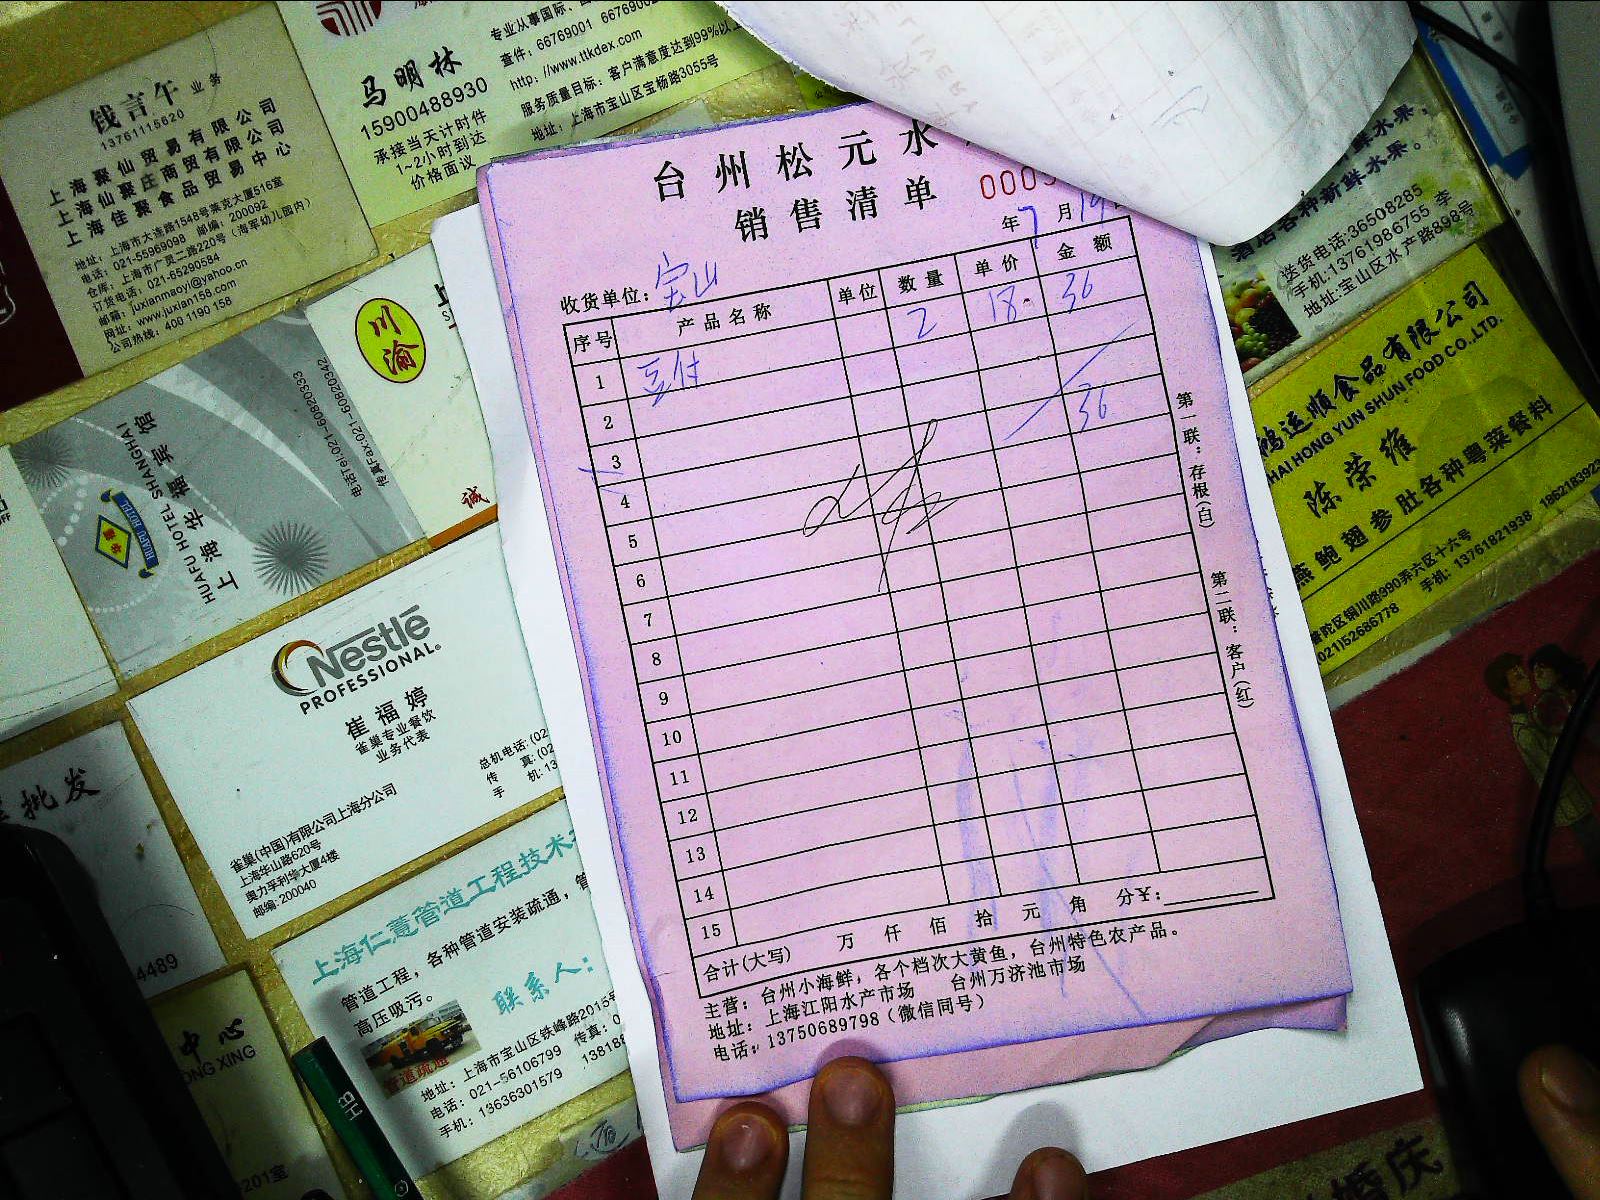 钱言午 业务
13761115620
上海聚仙贸易有限公司
上海仙聚庄商贸有限公司
上海佳聚食品贸易中心
地址：上海市大连路1548号莱克大厦516室
电话：021-55969098 邮编：200092
仓库：上海市广灵二路220号（海军幼儿园内）
订货电话：021-65290584
邮箱：juxianmaoyi@yahoo.cn
网址：www.juxian158.com
公司热线：400 1190 158
马明林
15900488930
承接当天计时件
1~2小时到达
价格面议
专业从事国际、
查件：66769001
http://www.ttkdex.com
服务质量目标：客户满意度达到99%以
地址：上海市宝山区宝杨路3055号
台州松元水
销售清单
000
年7月19
收货单位：宝山
序号 产品名称 单位 数量 单价 金额
1 豆付 2 18 36
2
3 36
4
5
6
7
8
9
10
11
12
13
14
15
合计(大写) 万 仟 佰 拾 元 角 分¥：
主营：台州小海鲜，各个档次大黄鱼，台州特色农产品。
地址：上海江阳水产市场 台州万济池市场
电话：13750689798（微信同号）
第一联：存根(白)
第二联：客户(红)
川渝
诚
上海华福宾馆
HUAFU HOTEL SHANGHAI
HUAFU HOTEL
电话Tel:021-60820333
传真Fax:021-60820342
Nestlé
PROFESSIONAL®
崔福婷
雀巢专业餐饮
业务代表
总机电话：(02
传 真：(02
手 机：13
雀巢(中国)有限公司上海分公司
上海华山路620号
奥力孚利华大厦4楼
邮编：200040
批发
4489
中心
ONG XING
201室
上海仁薏管道工程技术
管道工程，各种管道安装疏通，管
高压吸污。
联系人：
管道疏通
地址：上海市宝山区铁峰路2015号
电话：021-56106799 传真：0
手机：13636301579 13818
HB
鲜水果，
酒店各种新鲜水果。
送货电话:36508285
手机:13761986755 李
地址:宝山区水产路898号
鸿运顺食品有限公司
HAI HONG YUN SHUN FOOD CO.,LTD.
陈荣维
燕鲍翅参肚各种粤菜餐料
普陀区铜川路990弄六区十六号
(021)52686778 手机：13761821938 1862183923
婚庆